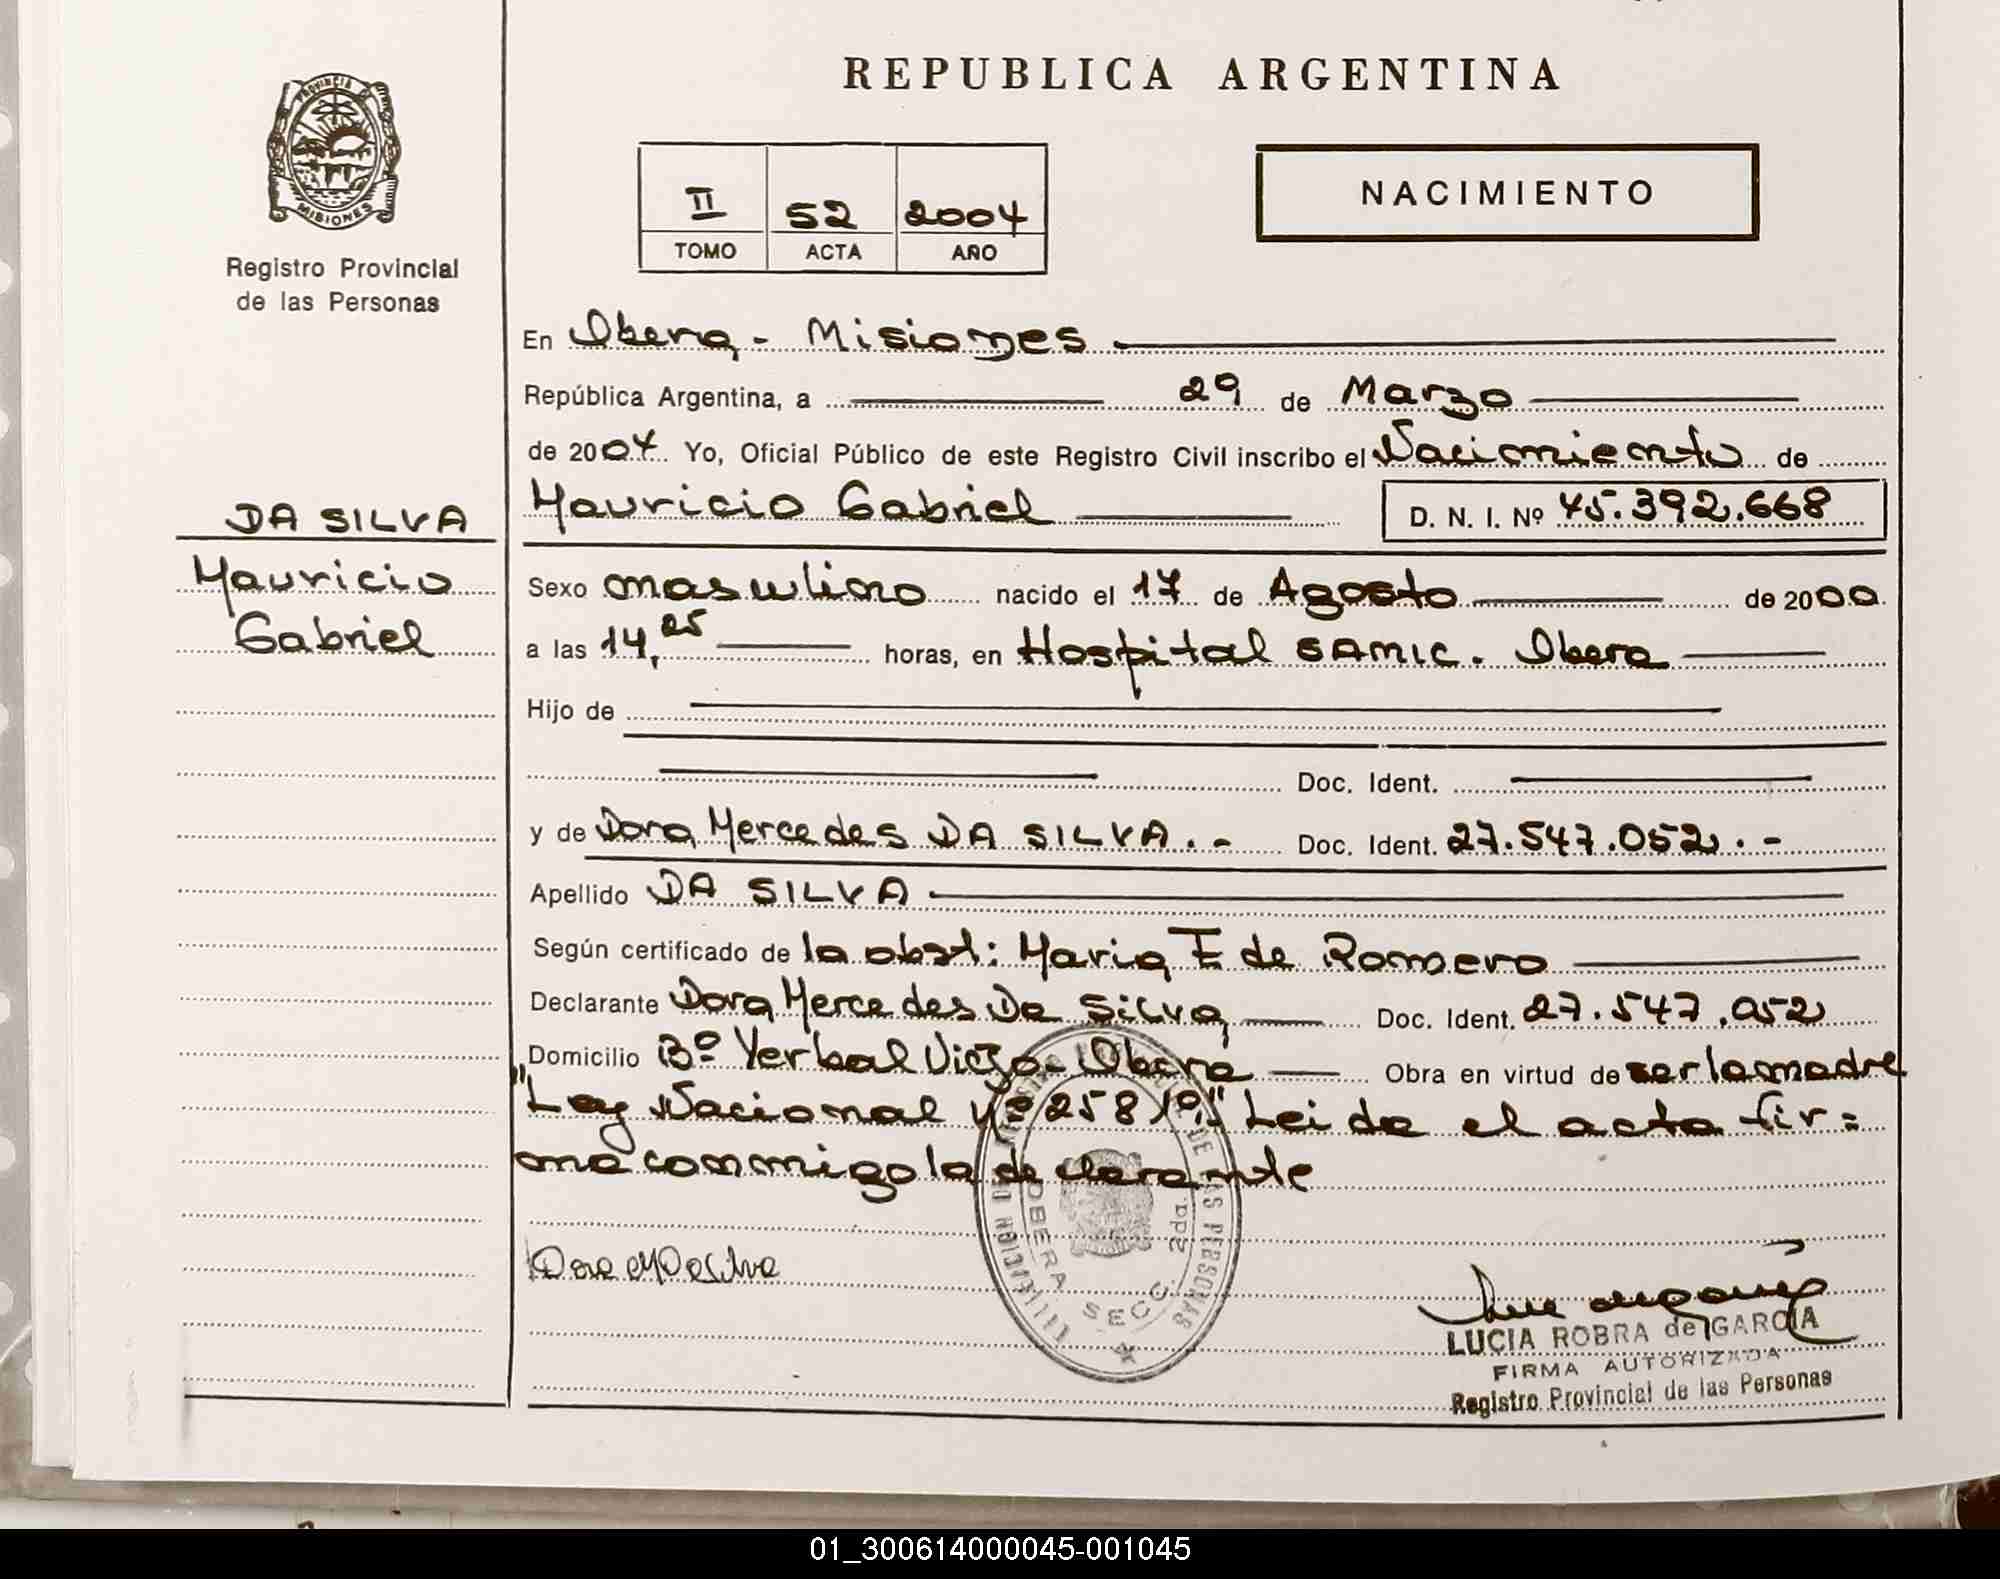 REPUBLICA ARGENTINA
PROVINCIA DE
MISIONES
Registro Provincial
de las Personas
II 52 2004
TOMO ACTA AÑO
NACIMIENTO
En Obera - Misiones
República Argentina, a 29 de Marzo
de 2004 Yo, Oficial Público de este Registro Civil inscribo el Nacimiento de
Mauricio Gabriel D. N. I. Nº 45.392.668
DA SILVA
Mauricio
Gabriel
Sexo masculino nacido el 17 de Agosto de 2000
a las 14,25 horas, en Hospital SAMIC. Obera
Hijo de
Doc. Ident.
y de Dora Mercedes DA SILVA.- Doc. Ident. 27.547.052.-
Apellido DA SILVA
Según certificado de la obst: Maria F de Romero
Declarante Dora Mercedes Da Silva Doc. Ident. 27.547.052
Domicilio Bº Yerbal Viejo - Obera Obra en virtud de ser la madre
"Ley Nacional Nº 25819." Leida el acta fir=
ma conmigo la declarante
DE LAS PERSONAS
OBERA SECC. 2da.
Dora M Da Silva
LUCIA ROBRA de GARCIA
FIRMA AUTORIZADA
Registro Provincial de las Personas
01_300614000045-001045